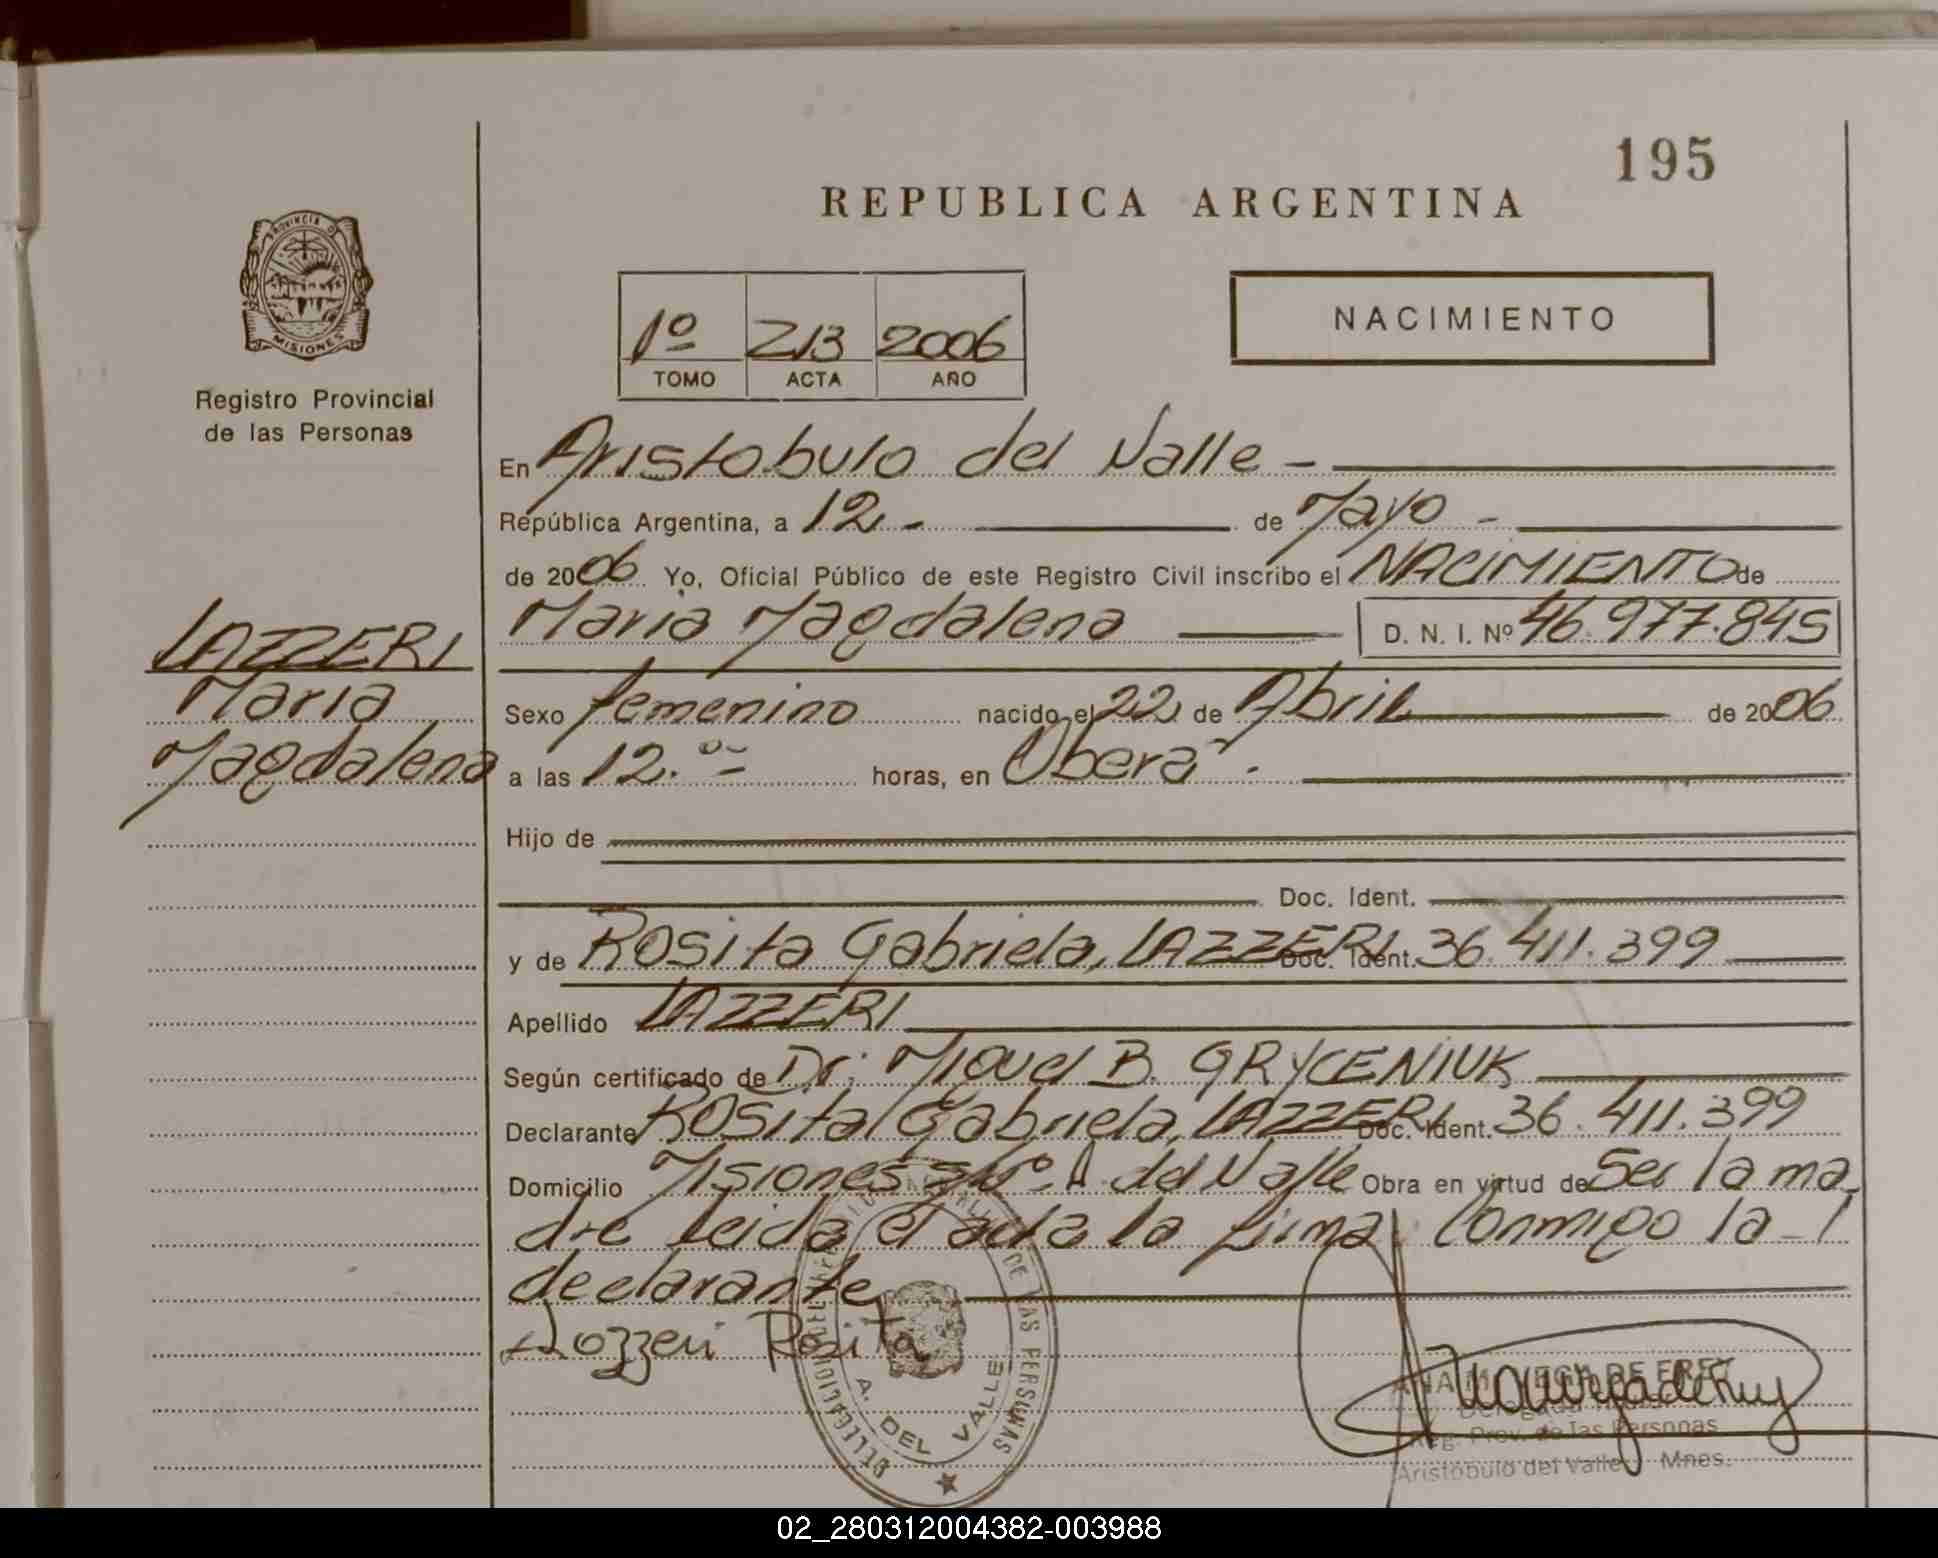 195
REPUBLICA ARGENTINA
PROVINCIA D
MISIONES
Registro Provincial
de las Personas
1º 213 2006
TOMO ACTA AÑO
NACIMIENTO
En Aristobulo del Valle -
República Argentina, a 12 - de Mayo -
de 2006 Yo, Oficial Público de este Registro Civil inscribo el NACIMIENTO de
Maria Magdalena D. N. I. Nº 46.977.845
LAZZERI
Maria
Magdalena
Sexo femenino nacido el 22 de Abril de 2006
a las 12.⁰⁻ horas, en Oberá -
Hijo de
Doc. Ident.
y de Rosita Gabriela, LAZZERI Doc. Ident. 36.411.399
Apellido LAZZERI
Según certificado de Dr. Miguel B. GRYCENIUK
Declarante Rosita Gabriela, LAZZERI Doc. Ident. 36.411.399
Domicilio Misiones A. del Valle Obra en virtud de Ser la ma
dre leida el acta la firma Conmigo la
declarante
Lazzeri Rosita
DE LAS PERSONAS
A. DEL VALLE
ANA M. VEGA DE FREY
Delegada
Reg. Prov. de las Personas
Aristóbulo del Valle - Mnes.
02_280312004382-003988